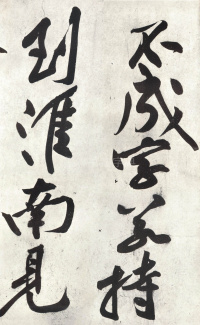 不成字若持
到淮南見